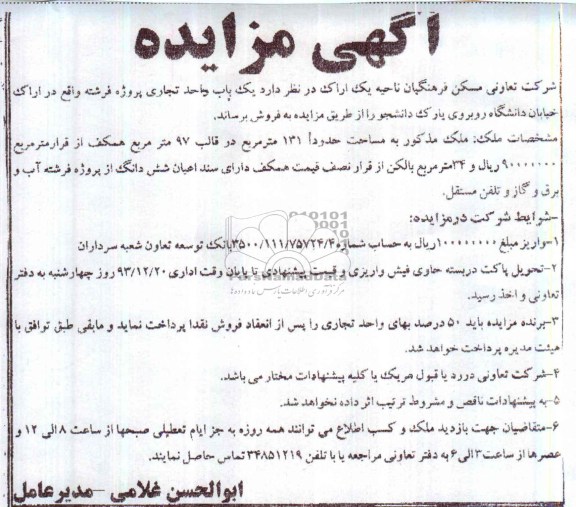 آگهی مزایده
شرکت تعاونی مسکن فرهنگیان ناحیه یک اراک در نظر دارد یک باب واحد تجاری پروژه فرشته واقع در اراک
خیابان دانشگاه روبروی پارک دانشجو را از طریق مزایده به فروش برساند.
مشخصات ملک: ملک مذکور به مساحت حدوداً ۱۳۱ مترمربع در قالب ۹۷ متر مربع همکف از قرار مترمربع
۹۰۰۰۰۰۰۰ ریال و ۳۴ مترمربع بالکن از قرار نصف قیمت همکف دارای سند اعیان شش دانگ از پروژه فرشته آب و
برق و گاز و تلفن مستقل.
-شرایط شرکت در مزایده:
۱-واریز مبلغ ۱۰۰۰۰۰۰۰۰ ریال به حساب شماره ۳۵۰۰/۱۱۱/۷۵۷۲۴/۴ بانک توسعه تعاون شعبه سرداران
۲-تحویل پاکت دربسته حاوی فیش واریزی و قیمت پیشنهادی تا پایان وقت اداری ۹۳/۱۲/۲۰ روز چهارشنبه به دفتر
تعاونی و اخذ رسید.
۳-برنده مزایده باید ۵۰ درصد بهای واحد تجاری را پس از انعقاد فروش نقدا پرداخت نماید و مابقی طبق توافق با
هیئت مدیره پرداخت خواهد شد.
۴-شرکت تعاونی در رد یا قبول هریک یا کلیه پیشنهادات مختار می باشد.
۵-به پیشنهادات ناقص و مشروط ترتیب اثر داده نخواهد شد.
۶-متقاضیان جهت بازدید ملک و کسب اطلاع می توانند همه روزه به جز ایام تعطیلی صبحها از ساعت ۸ الی ۱۲ و
عصرها از ساعت ۳ الی ۶ به دفتر تعاونی مراجعه یا با تلفن ۳۴۸۵۱۲۱۹ تماس حاصل نمایند.
ابوالحسن غلامی -مدیرعامل